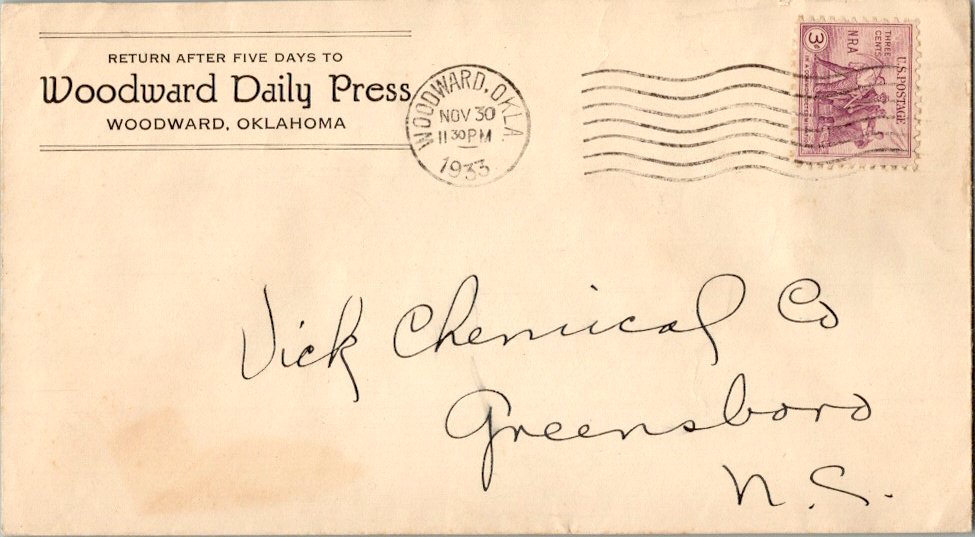 RETURN AFTER FIVE DAYS TO
Woodward Daily Press
WOODWARD, OKLAHOMA
WOODWARD, OKLA.
NOV 30
11 30 PM
1933
U.S. POSTAGE
THREE CENTS
NRA
3¢
Vick Chemical Co
Greensboro
N. C.